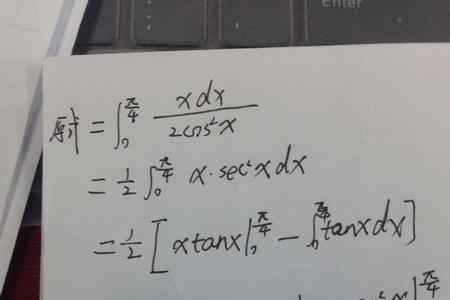 Enter
原式 = ∫₀^{π/4} xdx / 2cos²x
= 1/2 ∫₀^{π/4} x·sec²xdx
= 1/2 [xtanx|₀^{π/4} - ∫₀^{π/4} tanxdx]